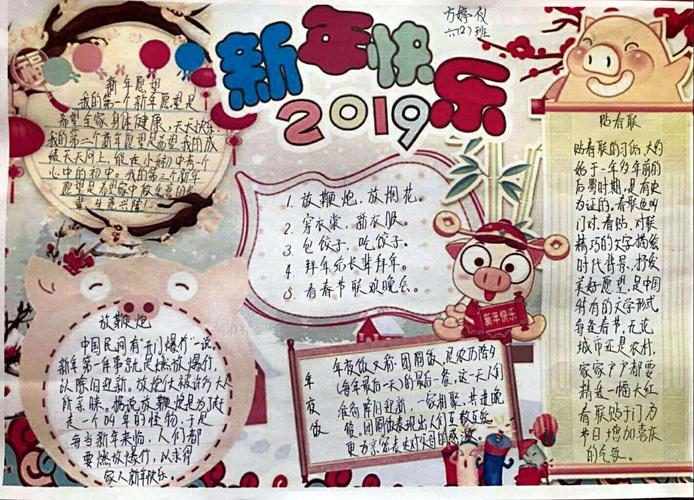 新年快乐
2019
方婷仪
六(2)班
新年愿望
我的第一个新年愿望是
希望全家身体健康,天天快乐
我的第二个新年愿望是希望我的成
绩天天向上,能在小初中有一个
心中的初中。我的第三个新年
愿望是希望家中
意兴隆!
1. 放鞭炮,放烟花。
2. 穿衣裳,新衣服。
3. 包饺子,吃饺子。
4. 拜年给长辈拜年。
5. 看春节联欢晚会。
新年快乐
贴春联
贴春联的习俗,大约
始于一千多年前的
后蜀时期,是有史
为证的。春联也叫
门对、春贴、对联
精巧的文字描绘
时代背景,抒发
美好愿望,是中国
特有的文学形式
每逢春节,无论
城市还是农村,
家家户户都要
精选一幅大红
春联贴于门为
节日增加喜庆
的气氛。
放鞭炮
中国民间有“开门爆竹”一说,
新年第一件事就是燃放爆竹,
以除旧迎新,放炮仗被许多人
所亲睐。据说放鞭炮是为了赶
走一个叫年的怪物,于是
每当新年来临,人们都
要燃放爆竹,以求得
家人新年快乐。
年夜饭
年夜饭又称团圆饭,是农历除夕
(每年最后一天)的最后一餐,这一天人们
准备除旧迎新,一家相聚,共进晚
餐。团圆饭表现出人们互敬互爱
更为京家表对父母的感激。